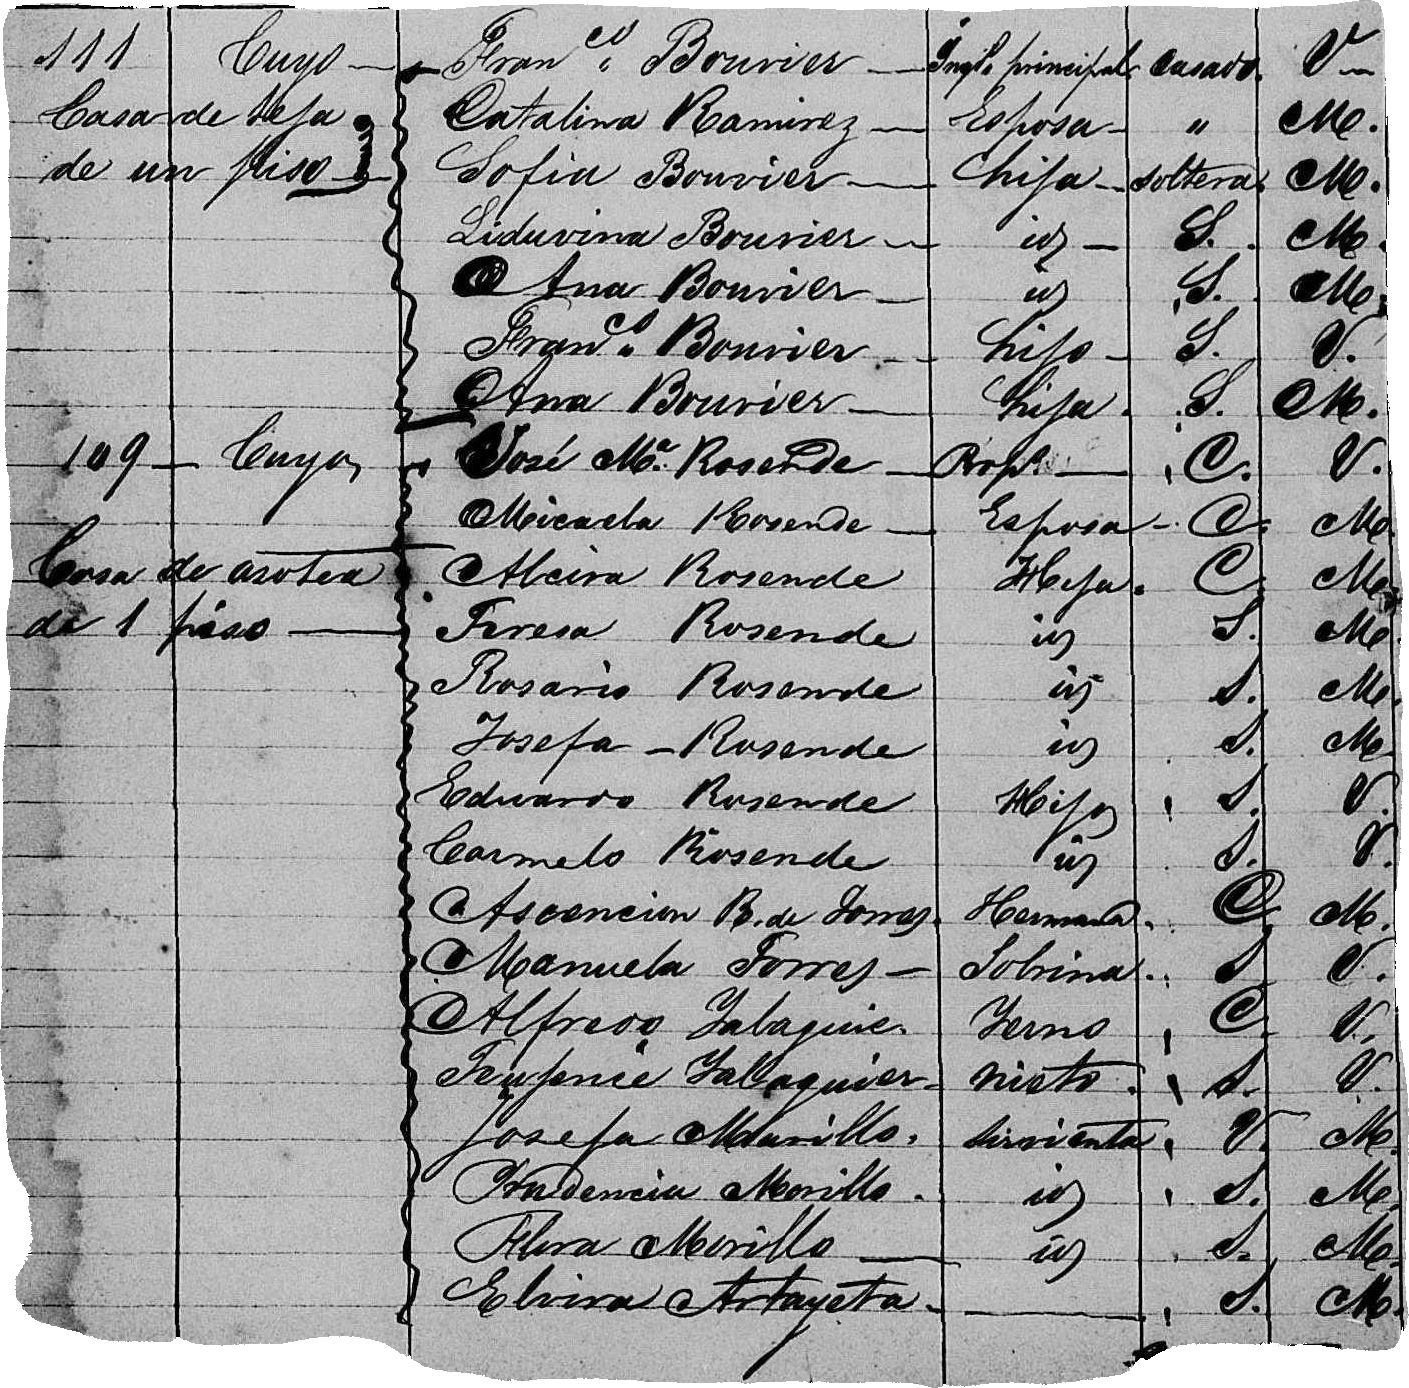 111 Cuyo — Fran.co Bouvier — Inql.o principal casado. V—
Casa de teja Catalina Ramirez — Esposa — " M.
de un piso — Sofia Bouvier — hija — soltera. M.
Liduvina Bouvier — id — S. M.
Ana Bouvier — id S. M.
Fran.co Bouvier — hijo — S. V.
Ana Bouvier — hija. S. M.
109 — Cuyo José M.a Rosende — Prop.o — C. V.
Micaela Rosende — Esposa — C. M.
Casa de azotea Alcira Rosende Hija. C. M.
de 1 piso — Teresa Rosende id S. M.
Rosario Rosende id S. M.
Josefa — Rosende id S. M.
Eduardo Rosende Hijo S. V.
Carmelo Rosende id S. V.
Ascencion R. de Torres. Hermana. C. M.
Manuela Torres — Sobrina. S V.
Alfredo Yerno C. V.
nieto. S. V.
Josefa Murillo. sirvienta. V. M.
Morillo. id S. M.
Flora Morillo — id S. M.
Elvira Artayeta. — S. M.